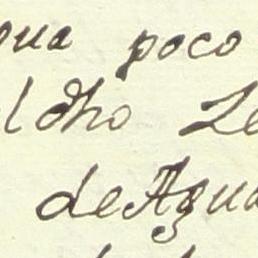 gua poco
l dho Le
de Agua